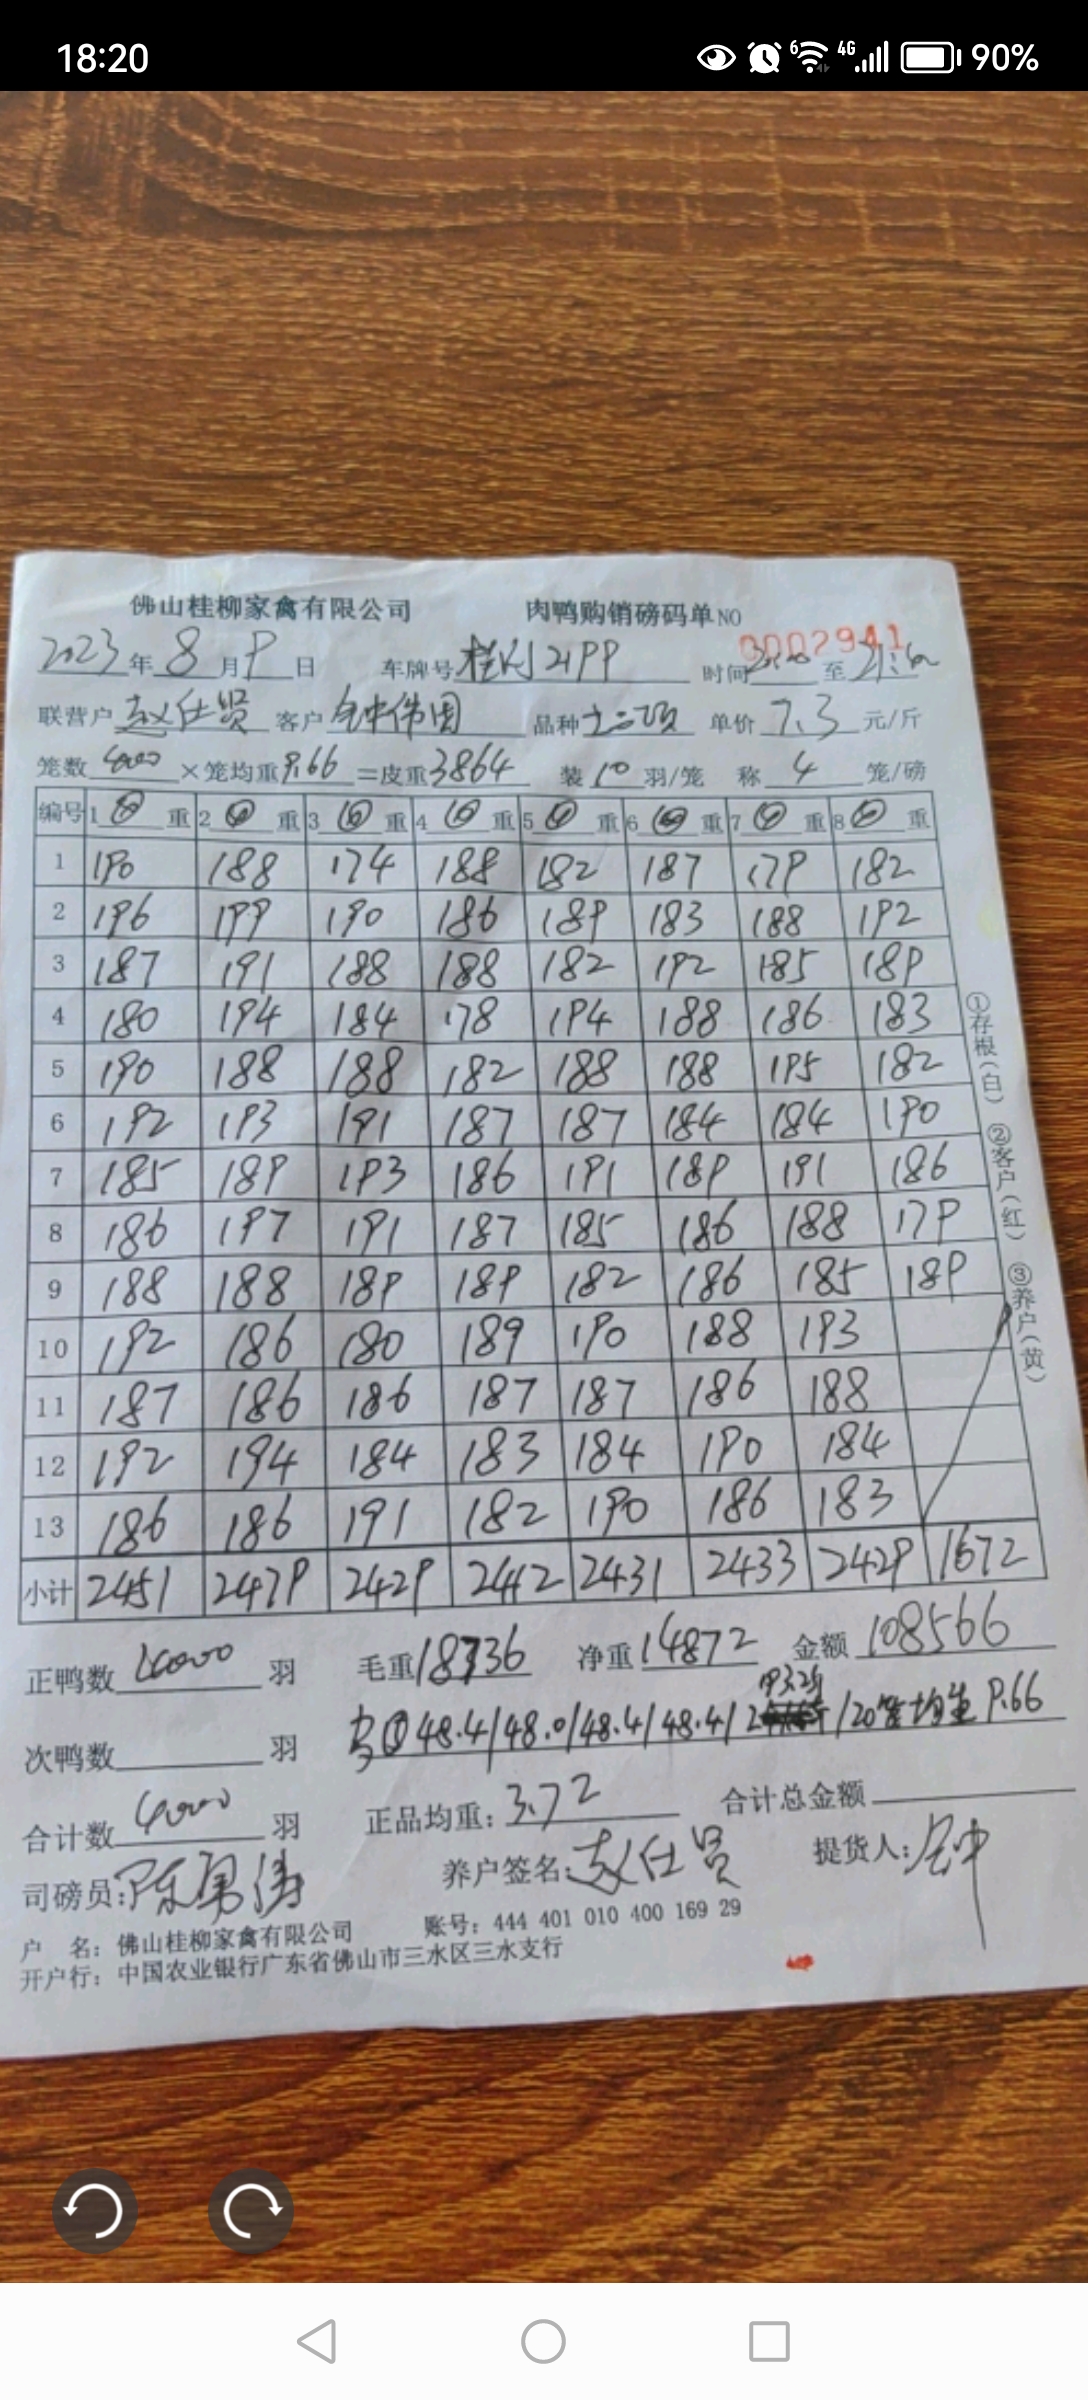 18:20 6 4G 90%
佛山桂柳家禽有限公司 肉鸭购销磅码单NO 0002941
2023年8月9日 车牌号 2199 时间 至
联营户 赵仕贤 客户 钟伟周 品种 单价 7.3 元/斤
笼数 4000 ×笼均重 9.66 =皮重 3864 装 10 羽/笼 称 4 笼/磅
编号 1 重 2 重 3 重 4 重 5 重 6 重 7 重 8 重
1 190 188 174 188 182 187 179 182
2 196 199 190 186 189 183 188 192
3 187 191 188 188 182 192 185 189
4 180 194 184 178 194 188 186 183
5 190 188 188 182 188 188 195 182
6 192 193 191 187 187 184 184 190
7 185 189 193 186 191 189 191 186
8 186 197 191 187 185 186 188 179
9 188 188 189 189 182 186 185 189
10 192 186 180 189 190 188 193
11 187 186 186 187 187 186 188
12 192 194 184 183 184 190 184
13 186 186 191 182 190 186 183
小计 2451 2479 2429 2412 2431 2433 2429 1672
①存根(白) ②客户(红) ③养户(黄)
正鸭数 4000 羽 毛重 18736 净重 14872 金额 108566
次鸭数 羽 48.4/48.0/48.4/48.4/ 193.2斤 /20笼均重 9.66
合计数 4000 羽 正品均重: 3.72 合计总金额
司磅员: 陈勇涛 养户签名: 赵仕贤 提货人: 钟
户 名: 佛山桂柳家禽有限公司 账号: 444 401 010 400 169 29
开户行: 中国农业银行广东省佛山市三水区三水支行